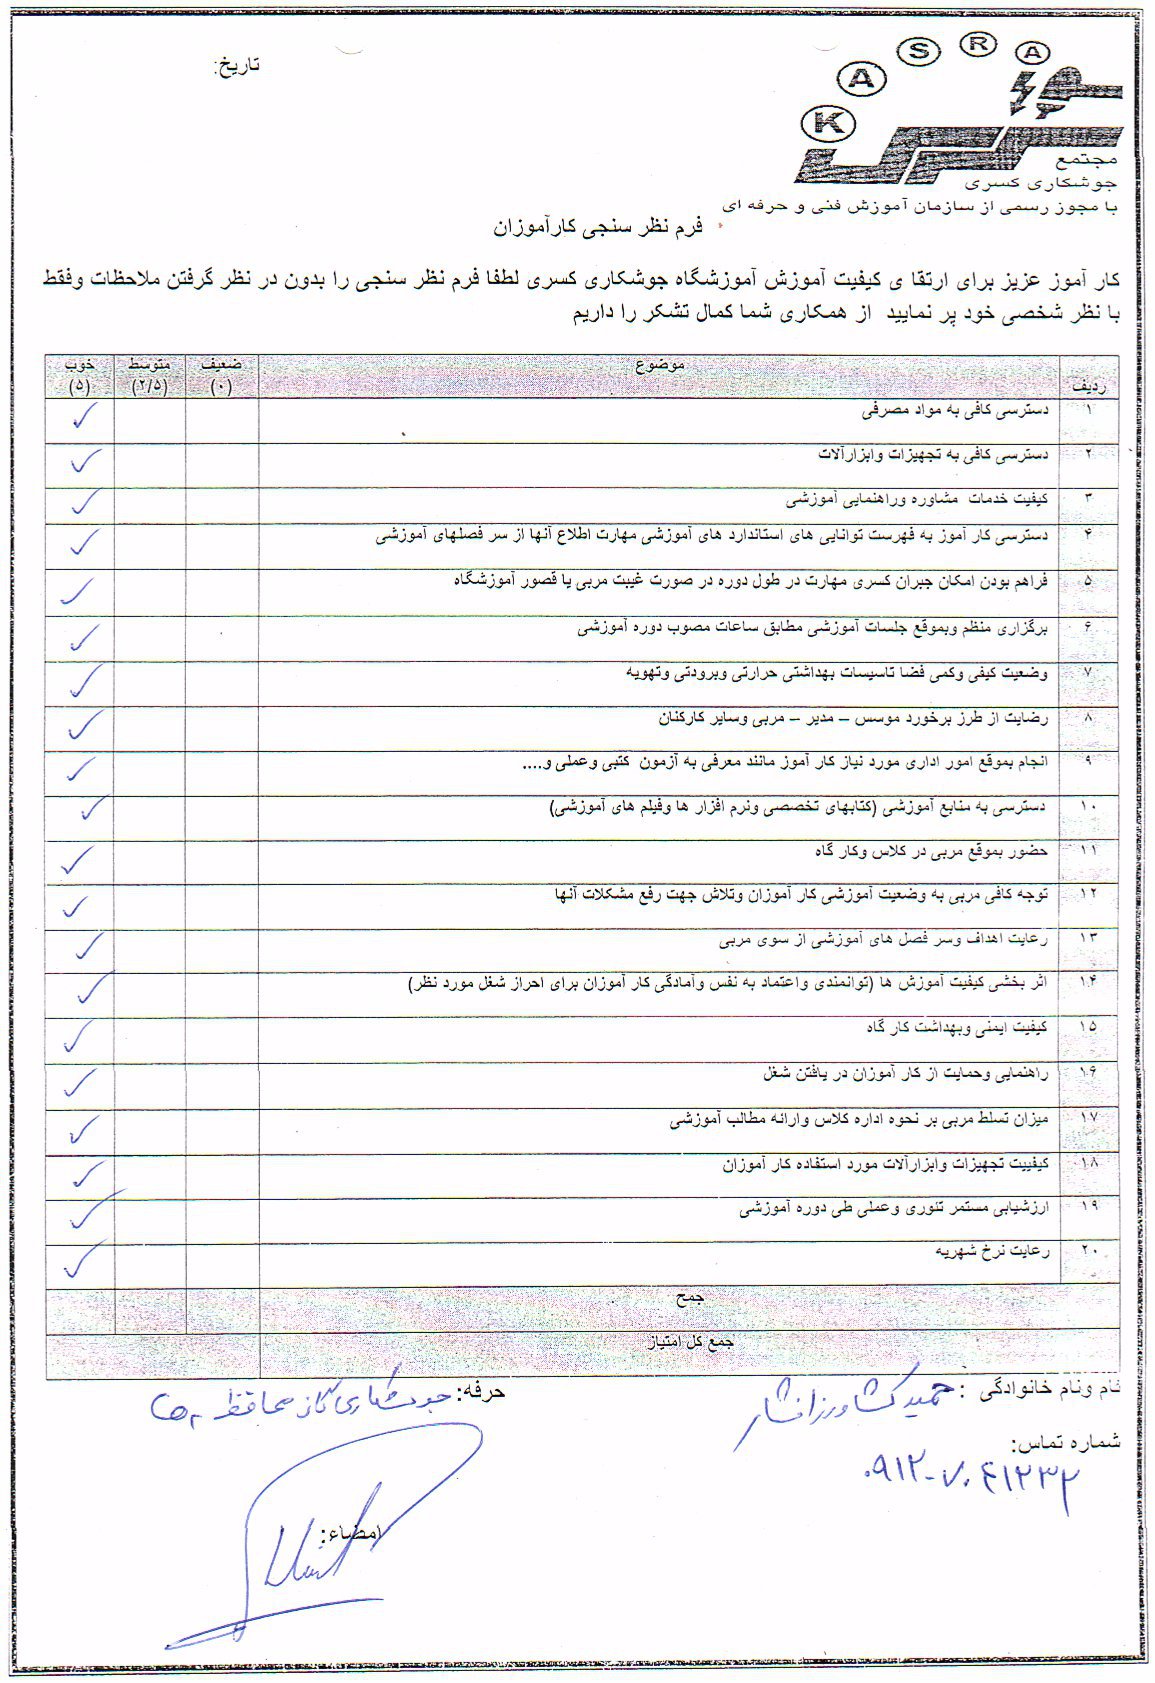 K A S R A
تاریخ:
مجتمع
جوشکاری کسری
با مجوز رسمی از سازمان آموزش فنی و حرفه ای
فرم نظر سنجی کارآموزان
کار آموز عزیز برای ارتقا ی کیفیت آموزش آموزشگاه جوشکاری کسری لطفا فرم نظر سنجی را بدون در نظر گرفتن ملاحظات وفقط
با نظر شخصی خود پر نمایید از همکاری شما کمال تشکر را داریم
ردیف موضوع ضعیف (۰) متوسط (۲/۵) خوب (۵)
۱ دسترسی کافی به مواد مصرفی ✓
۲ دسترسی کافی به تجهیزات وابزارآلات ✓
۳ کیفیت خدمات مشاوره وراهنمایی آموزشی ✓
۴ دسترسی کار آموز به فهرست توانایی های استاندارد های آموزشی مهارت اطلاع آنها از سر فصلهای آموزشی ✓
۵ فراهم بودن امکان جبران کسری مهارت در طول دوره در صورت غیبت مربی یا قصور آموزشگاه ✓
۶ برگزاری منظم وبموقع جلسات آموزشی مطابق ساعات مصوب دوره آموزشی ✓
۷ وضعیت کیفی وکمی فضا تاسیسات بهداشتی حرارتی وبرودتی وتهویه ✓
۸ رضایت از طرز برخورد موسس – مدیر – مربی وسایر کارکنان ✓
۹ انجام بموقع امور اداری مورد نیاز کار آموز مانند معرفی به آزمون کتبی وعملی و.... ✓
۱۰ دسترسی به منابع آموزشی (کتابهای تخصصی ونرم افزار ها وفیلم های آموزشی) ✓
۱۱ حضور بموقع مربی در کلاس وکار گاه ✓
۱۲ توجه کافی مربی به وضعیت آموزشی کار آموزان وتلاش جهت رفع مشکلات آنها ✓
۱۳ رعایت اهداف وسر فصل های آموزشی از سوی مربی ✓
۱۴ اثر بخشی کیفیت آموزش ها (توانمندی واعتماد به نفس وآمادگی کار آموزان برای احراز شغل مورد نظر) ✓
۱۵ کیفیت ایمنی وبهداشت کار گاه ✓
۱۶ راهنمایی وحمایت از کار آموزان در یافتن شغل ✓
۱۷ میزان تسلط مربی بر نحوه اداره کلاس وارائه مطالب آموزشی ✓
۱۸ کیفییت تجهیزات وابزارآلات مورد استفاده کار آموزان ✓
۱۹ ارزشیابی مستمر تئوری وعملی طی دوره آموزشی ✓
۲۰ رعایت نرخ شهریه ✓
جمح
جمع کل امتیاز
نام ونام خانوادگی : حمید کشاورز افشار حرفه: جوشکاری گاز محافظ
شماره تماس:
۰۹۱۲-۷۰۴۱۲۳۲
امضاء: